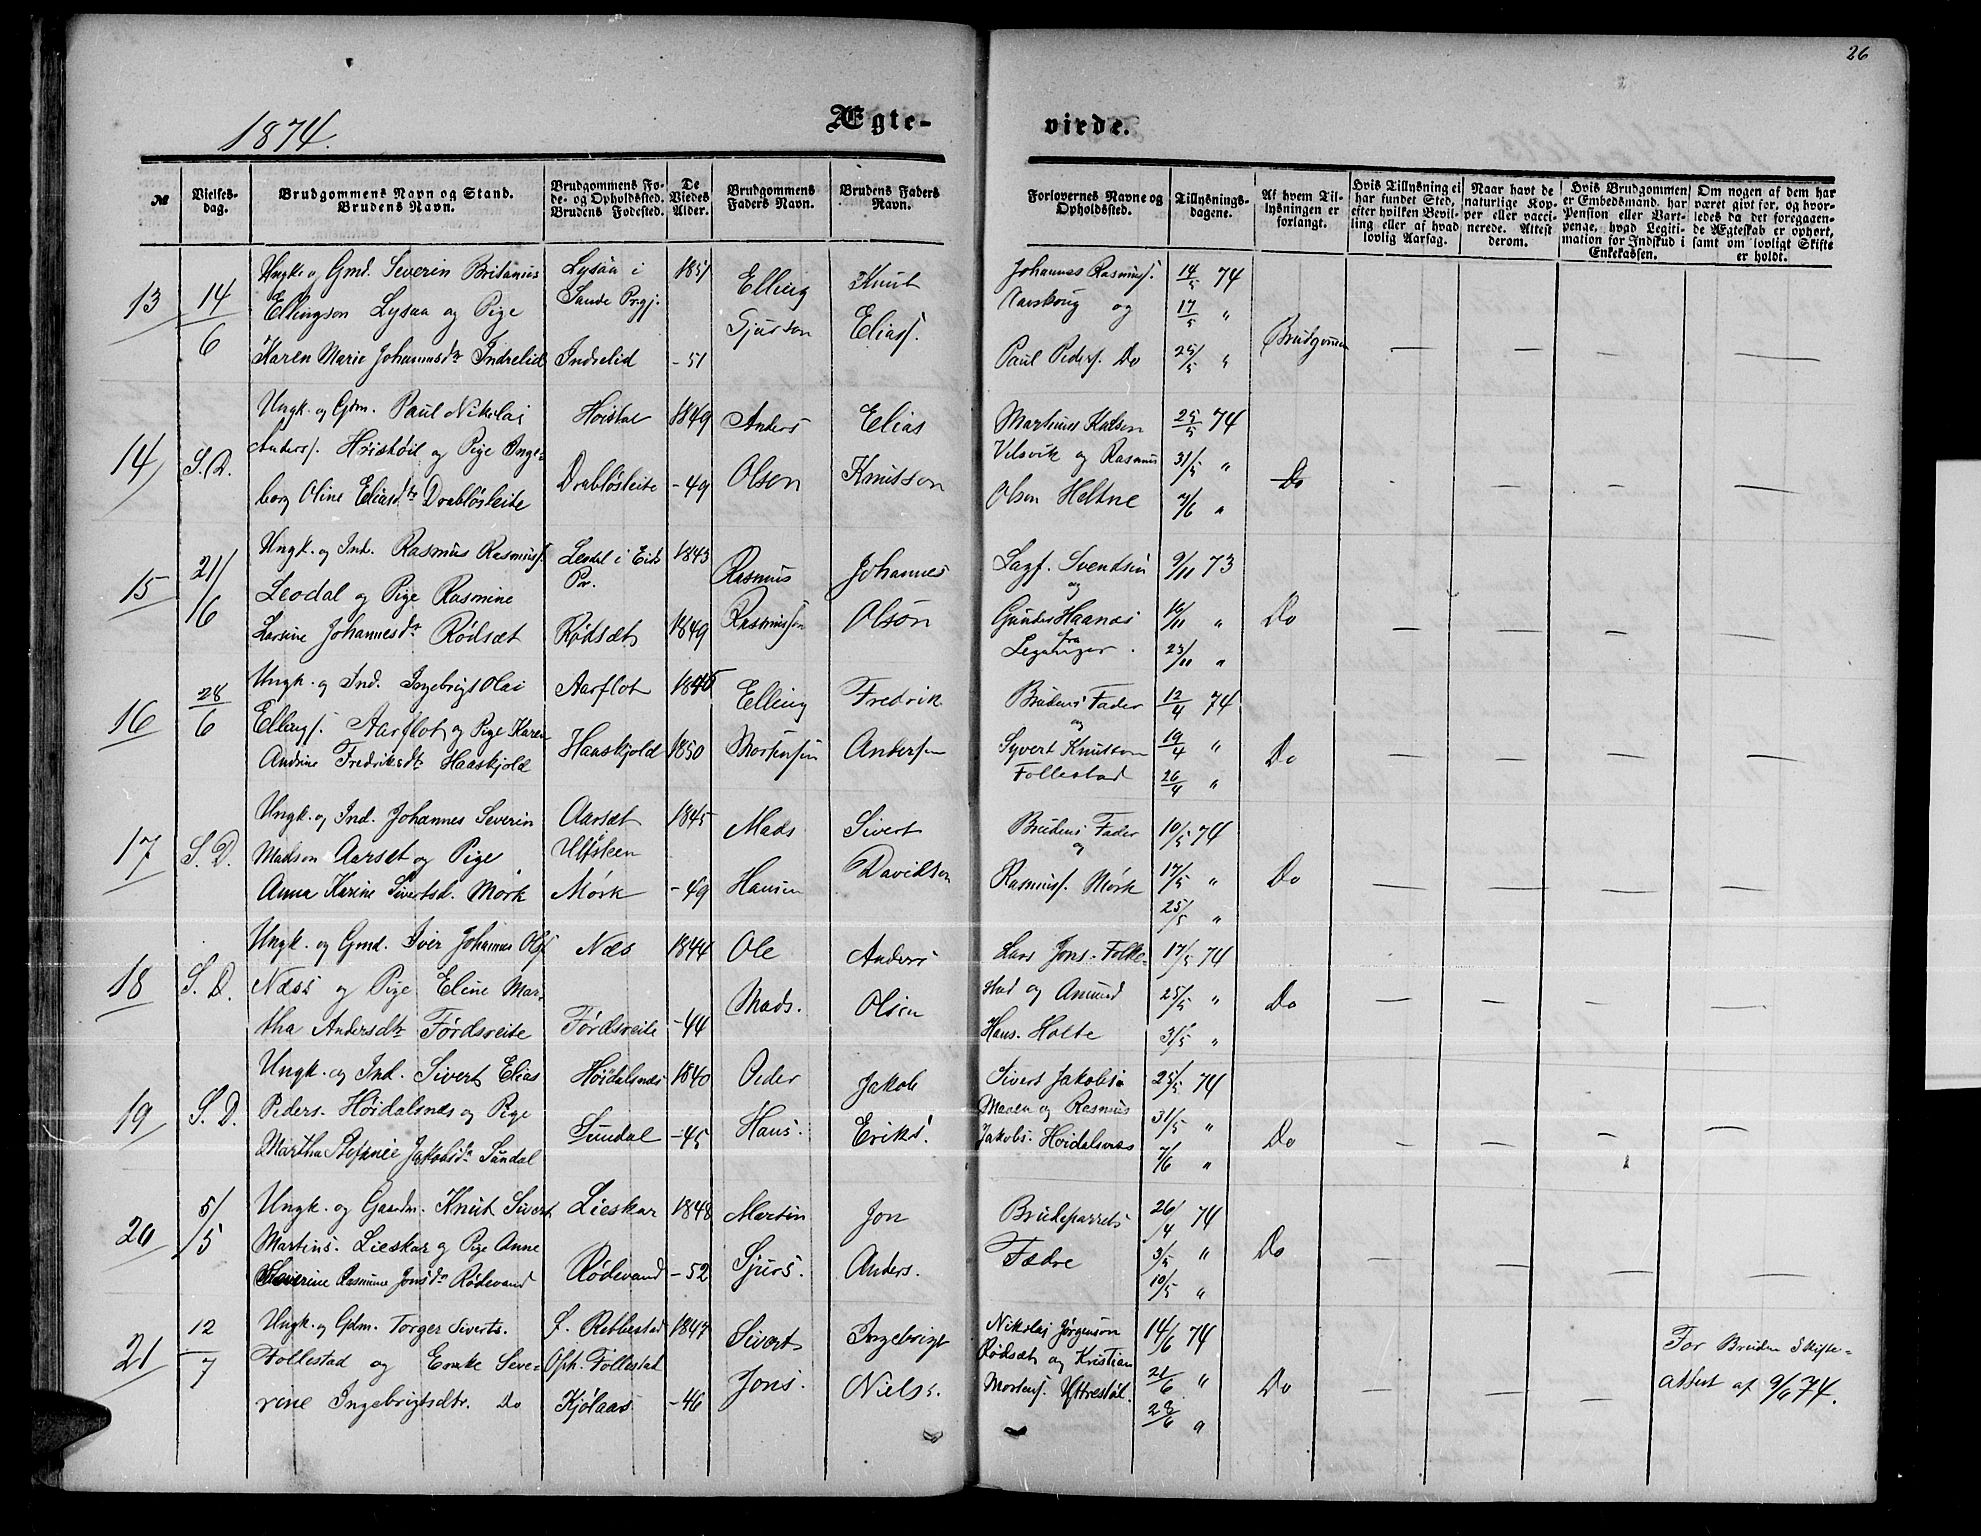 26
1874.
Ægte-
viede.
№
Vielses-
dag.
Brudgommens Navn og Stand.
Brudens Navn.
Brudgommens Fø-
de- og Opholdssted.
Brudens Fødested.
De
Viedes
Alder.
Brudgommens
Faders Navn.
Brudens Faders
Navn.
Forlovernes Navne og
Opholdssted.
Tillysnings-
dagene.
Af hvem Til-
lysningen er
forlangt.
Hvis Tillysning ei
har fundet Sted,
efter hvilken Bevil-
ling eller af hvad
lovlig Aarsag.
Naar havt de
naturlige Kop-
per eller vacci-
nerede. Attest
derom.
Hvis Brudgommen
er Embedsmand, har
Pension eller Vart-
penge, hvad Legiti-
mation for Indskud i
Enkekassen.
Om nogen af dem har
været givt før, og hvor-
ledes da det foregaaen-
de Ægteskab er ophørt,
samt om lovligt Skifte
er holdt.
13
14/6
Ungk. og Gmd. Severin Britanius
Ellingson Lysaa og Pige
Karen Marie Johannesdtr Indrelid
Lysaa i
Sande Prgj.
Indrelid
1851
- 51
Elling
Gjurson
Knut
Eliass.
Johannes Rasmuss.
Aarskoug og
Paul Peders. Do
14/5 74
17/5 "
25/5 "
Brudgommen
14
S. D.
Ungk. og Gdm. Paul Nikolai
Anderss. Höistöil og Pige Inge-
borg Oline Eliasdtr Drabløsleite
Høistøl
Drabløsleite
1849
- 49
Anders
Olsen
Elias
Knutson
Martinus Kolsen
Velsvik og Rasmus
Olsen Heltne
25/5 74
31/5 "
7/6 "
Do
15
21/6
Ungk. og Ind. Rasmus Rasmuss.
Leodal og Pige Rasmine
Larsine Johannesdtr Rödsæt
Leodal i Eids
Pr.
Rödsæt
1843
1849
Rasmus
Rasmussen
Johannes
Olson
Lagf. Svendsen
og
Gunder Haanes
fra
Leganger.
9/11 73
16/11 "
23/11 "
Do
16
28/6
Ungk. og Ind. Ingebrigt Olai
Ellings. Aarflot og Pige Karen
Andrine Fredriksdtr Haaskjold
Aarflot
Haaskjold
1845
1850
Elling
Mortensen
Fredrik
Andersen
Brudens Fader
og
Syvert Knutson
Follestad
12/4 74
19/4 "
26/4 "
Do
17
S. D.
Ungk. og Ind. Johannes Severin
Madson Aarset og Pige
Anna Karine Sivertsd. Mørk
Aarsæt
Ulfsteen
Mørk
1845
- 49
Mads
Hansen
Sivert
Davidson
Brudens Fader
og
Rasmuss. Mørk
10/5 74
17/5 "
25/5 "
Do
18
S. D.
Ungk. og Gmd. Iver Johannes Ols.
Næss og Pige Eline Mar-
tha Andersdtr Førdsreite
Næs
Førdsreite
1844
- 44
Ole
Mads.
Anders
Olsen
Lars Jons. Folke-
stad og Amund
Hans. Holte
17/5 74
25/5 "
31/5 "
Do
19
S. D.
Ungk. og Ind. Sivert Elias
Peders. Höidalsnæs og Pige
Martha Stefanie Jakobsdtr Sundal
Höidalsnæs
Sundal
1840
- 45
Peder
Hans.
Jakob
Eriks.
Sivert Jakobs.
og Rasmus
Jakobs. Høidalsnæs
25/5 74
31/5 "
7/6 "
Do
20
5/5
Ungk. og Gaardm. Knut Sivert
Martins. Lieskar og Pige Anne
Severine Rasmine Jonsdtr Rødevand
Lieskar
Rødevand
1848
- 52
Martin
Sjurs.
Jon
Anders.
Brudeparrets
Fædre
26/4 74
3/5 "
10/5 "
Do
21
12/7
Ungk. og Gdm. Torger Siverts.
Follestad og Enke Seve-
rine Ingebrigtsdtr. Do
F. Rebbestad
Oph. Follestad
Kjölaas
1847
- 46
Sivert
Jons.
Ingebrigt
Niels.
Nikolai Jørgenson
Rødsæt og Kristian
Mortens. Yttrestøl.
14/6 74
21/6 "
28/6 "
Do
For Bruden Skifte-
attest af 9/6 74.